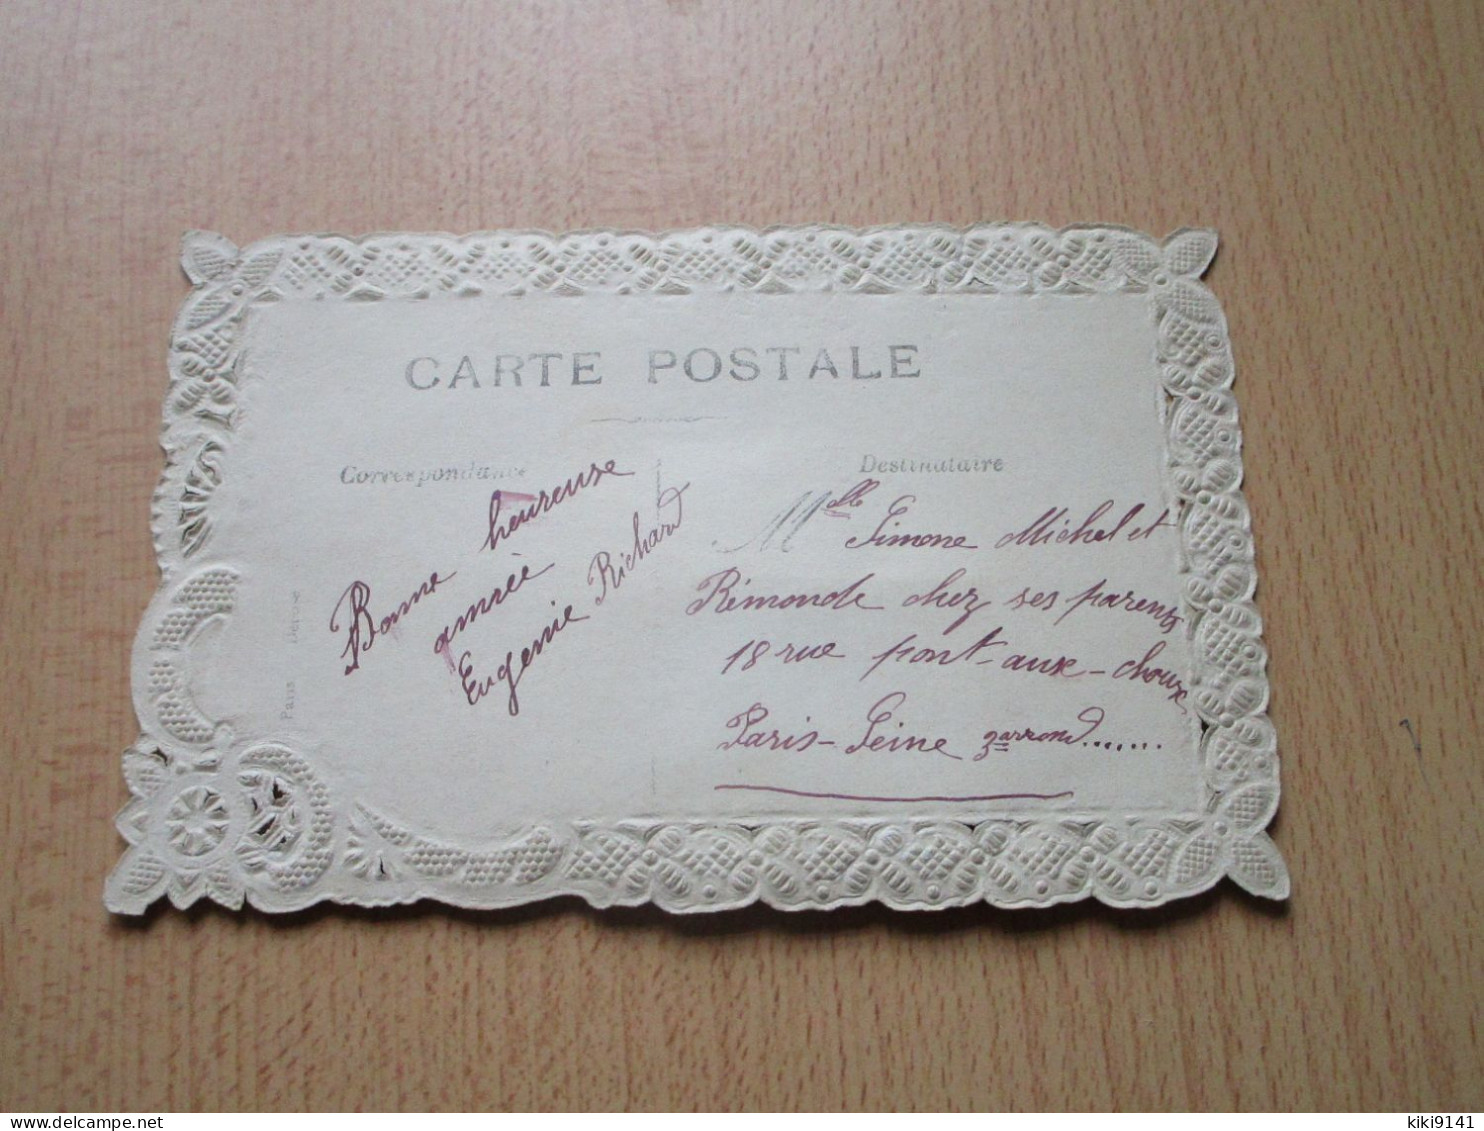 CARTE POSTALE
Correspondance
Destinataire
Bonne heureuse
année
Eugenie Richard
Mlle Simone Michel et
Rémonde chez ses parents
18 rue pont-aux-choux
Paris-Seine 3 arrond.......
Paris
delcampe.net
kiki9141